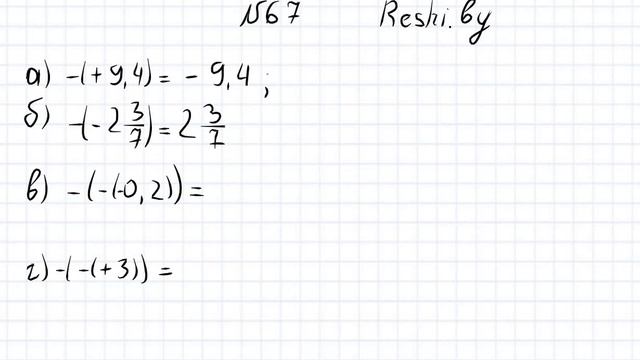 №67 Reshi.by
а) -(+9,4) = -9,4 ;
б) -(-2 3/7) = 2 3/7
в) -(-(-0,2)) =
г) -(-(+3)) =